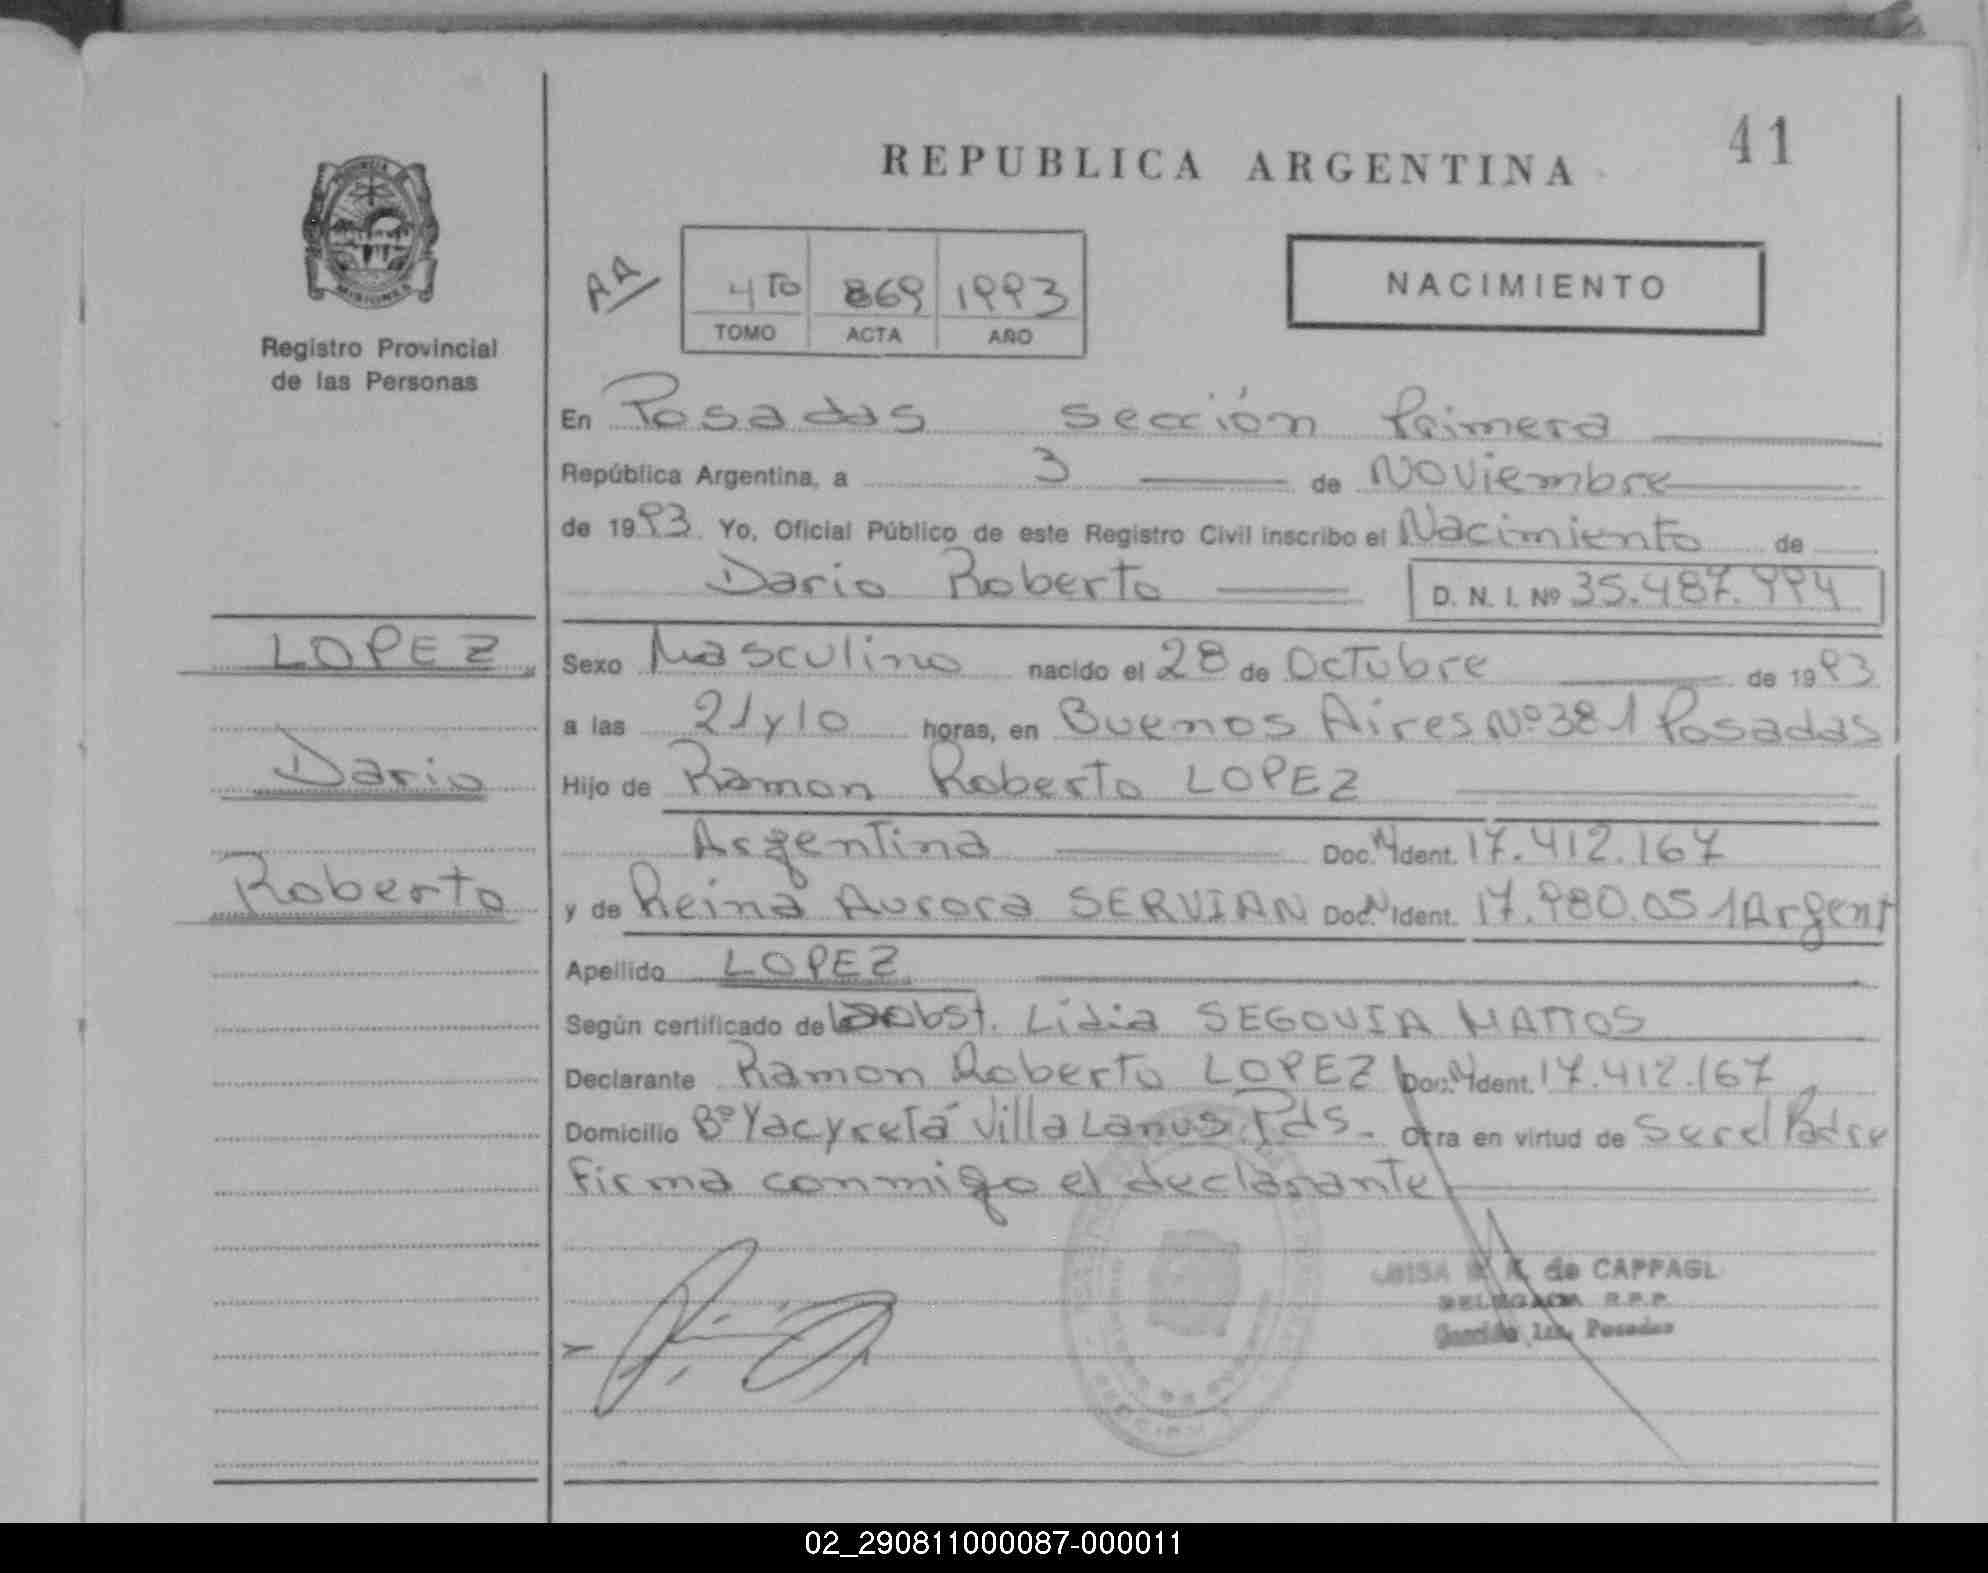 41
REPUBLICA ARGENTINA
PROVINCIA DE
MISIONES
Registro Provincial
de las Personas
AA
4to 869 1993
TOMO ACTA AÑO
NACIMIENTO
En Posadas sección Primera
República Argentina, a 3 de Noviembre
de 1993. Yo, Oficial Público de este Registro Civil inscribo el Nacimiento de
Dario Roberto D. N. I. Nº 35.487.994
LOPEZ
Dario
Roberto
Sexo Masculino nacido el 28 de Octubre de 1993
a las 21 y 10 horas, en Buenos Aires Nº 381 Posadas
Hijo de Ramon Roberto LOPEZ
Argentina Doc. N Ident. 17.412.167
y de Reina Aurora SERVIAN Doc. N Ident. 17.980.051 Argent
Apellido LOPEZ
Según certificado de obst. Lidia SEGOVIA MATTOS
Declarante Ramon Roberto LOPEZ Doc. N Ident. 17.412.167
Domicilio Bº Yacyretá Villa Lanus Pds. Otra en virtud de Ser el Padre
Firma conmigo el declarante
de CAPPAGL
DELEGADA R.P.P.
1ra. Posadas
02_290811000087-000011